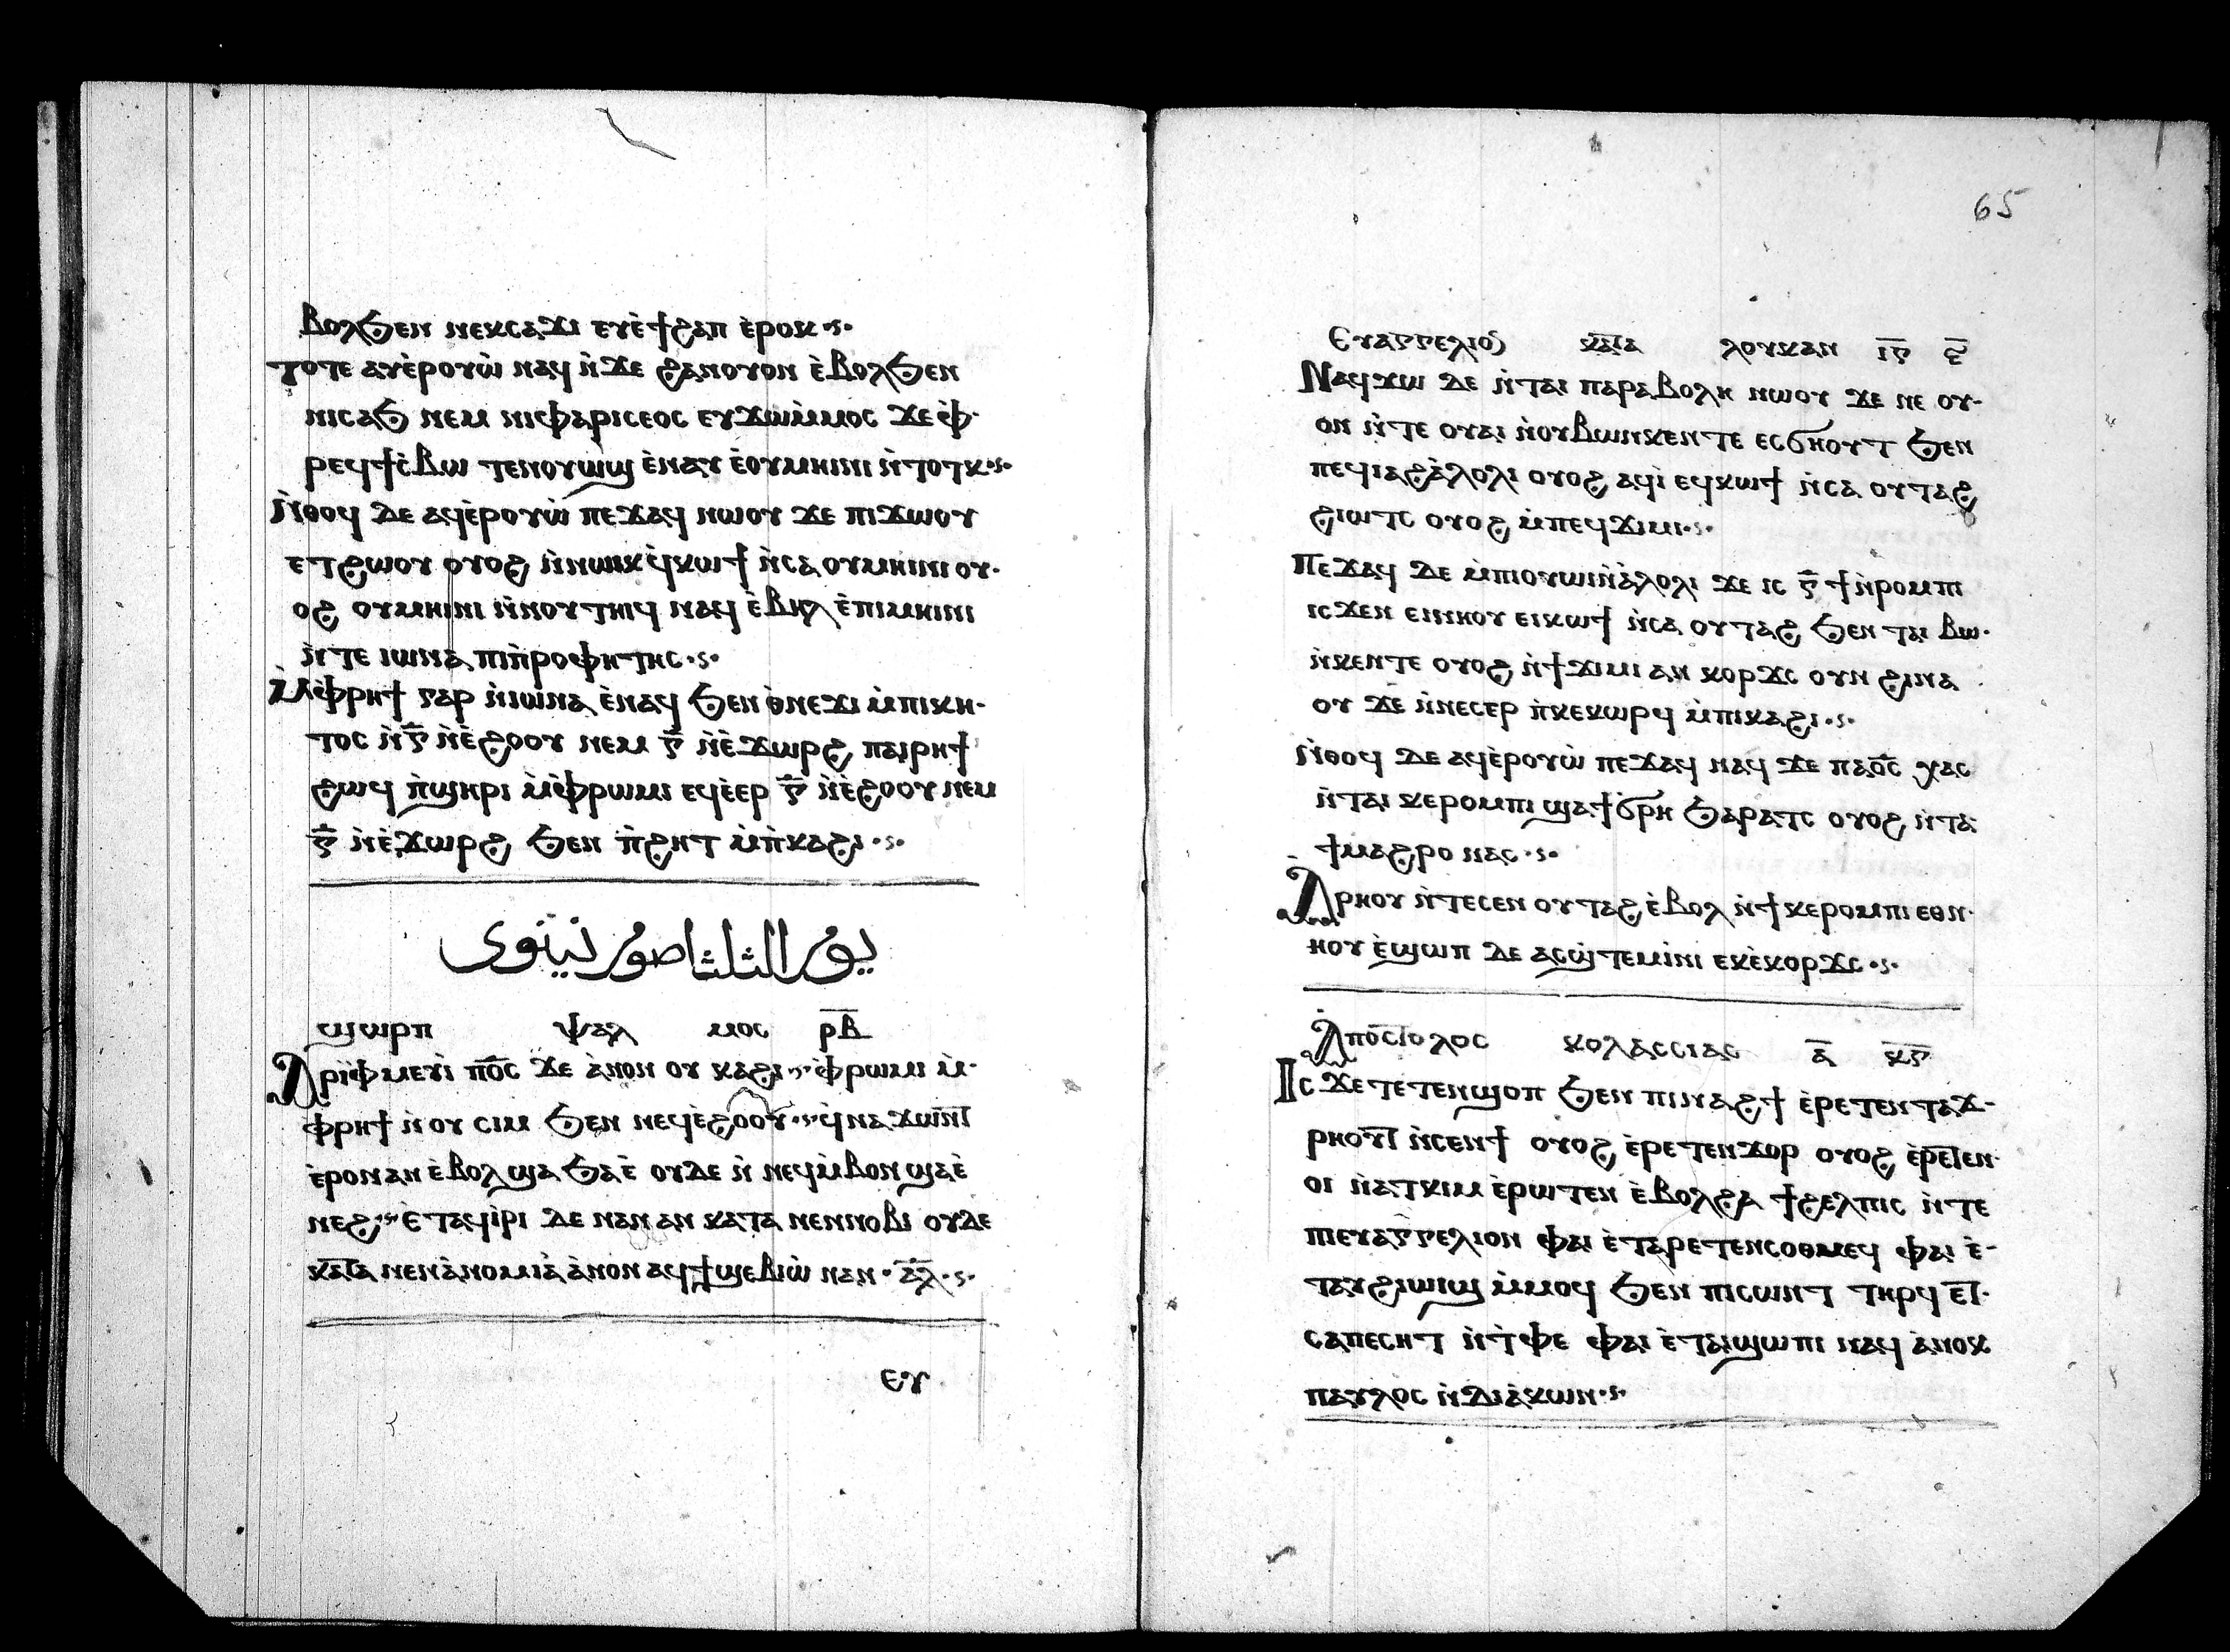 ⲃⲟⲗϧⲉⲛ ⲛⲉⲕⲥⲁϫⲓ ⲉⲩⲉ̀ϯϩⲁⲡ ⲉ̀ⲣⲟⲕ
ⲧⲟⲧⲉ ⲁⲩⲉ̀ⲣⲟⲩⲱ̀ ⲛⲁϥ ⲛ̀ϫⲉ ϩⲁⲛⲟⲩⲟⲛ ⲉ̀ⲃⲟⲗϧⲉⲛ
ⲛⲓⲥⲁϧ ⲛⲉⲙ ⲛⲓⲫⲁⲣⲓⲥⲉⲟⲥ ⲉⲩϫⲱⲙ̀ⲙⲟⲥ ϫⲉ ⲫ̀
ⲣⲉϥϯⲥ̀ⲃⲱ ⲧⲉⲛⲟⲩⲱϣ ⲉ̀ⲛⲁⲩ ⲉ̀ⲟⲩⲙⲏⲓⲛⲓ ⲛ̀ⲧⲟⲧⲕ
ⲛ̀ⲑⲟϥ ⲇⲉ ⲁϥⲉ̀ⲣⲟⲩⲱ̀ ⲡⲉϫⲁϥ ⲛⲱⲟⲩ ϫⲉ ⲡⲓϫⲱⲟⲩ
ⲉⲧϩⲱⲟⲩ ⲟⲩⲟϩ ⲛ̀ⲛⲱⲓⲕ ϥ̀ⲕⲱϯ ⲛ̀ⲥⲁ ⲟⲩⲙⲏⲓⲛⲓ ⲟⲩ
ⲟϩ ⲟⲩⲙⲏⲓⲛⲓ ⲛ̀ⲛⲟⲩⲧⲏⲓϥ ⲛⲁϥ ⲉ̀ⲃⲏⲗ ⲉ̀ⲡⲓⲙⲏⲓⲛⲓ
ⲛ̀ⲧⲉ ⲓⲱⲛⲁ ⲡⲓⲡ̀ⲣⲟⲫⲏⲧⲏⲥ
ⲙ̀ⲫ̀ⲣⲏϯ ⲅⲁⲣ ⲛ̀ⲓⲱⲛⲁ ⲉ̀ⲛⲁϥ ϧⲉⲛ ⲑ̀ⲛⲉϫⲓ ⲙ̀ⲡⲓⲕⲏ
ⲧⲟⲥ ⲛ̀ⲅ̅ ⲛ̀ⲉ̀ϩⲟⲟⲩ ⲛⲉⲙ ⲅ̅ ⲛ̀ⲉ̀ϫⲱⲣϩ ⲡⲁⲓⲣⲏϯ
ϩⲱϥ ⲡ̀ϣⲏⲣⲓ ⲙ̀ⲫ̀ⲣⲱⲙⲓ ⲉϥⲉ̀ⲉⲣ ⲅ̅ ⲛ̀ⲉ̀ϩⲟⲟⲩ ⲛⲉⲙ
ⲅ̅ ⲛ̀ⲉ̀ϫⲱⲣϩ ϧⲉⲛ ⲡ̀ϩⲏⲧ ⲙ̀ⲡ̀ⲕⲁϩⲓ
يوم الثلثا صوم نينوى
ϣⲱⲣⲡ ⲯⲁⲗ ⲙⲟⲥ ⲣ̅ⲃ̅
ⲁⲣⲓⲫ̀ⲙⲉⲩⲓ̀ ⲡ⳪ ϫⲉ ⲁ̀ⲛⲟⲛ ⲟⲩ ⲕⲁϩⲓ ⲫ̀ⲣⲱⲙⲓ ⲙ̀
ⲫⲣⲏϯ ⲛ̀ⲟⲩ ⲥⲓⲙ ϧⲉⲛ ⲛⲉϥⲉ̀ϩⲟⲟⲩ ϥ̀ⲛⲁϫⲱⲛ̅ⲧ̅
ⲉ̀ⲣⲟⲛ ⲁⲛ ⲉ̀ⲃⲟⲗ ϣⲁ ϧⲁⲉ̀ ⲟⲩⲇⲉ ⲛ̀ⲛⲉϥⲙ̀ⲃⲟⲛ ϣⲁⲉ̀
ⲛⲉϩ ⲉⲧⲁϥⲓ̀ⲣⲓ ⲇⲉ ⲛⲁⲛ ⲁⲛ ⲕⲁⲧⲁ ⲛⲉⲛⲛⲟⲃⲓ ⲟⲩⲇⲉ
ⲕⲁ̅ⲧ̅ⲁ ⲛⲉⲛⲁ̀ⲛⲟⲙⲓⲁ̀ ⲁ̀ⲛⲟⲛ ⲁϥϯϣⲉⲃⲓⲱ̀ ⲛⲁⲛ ⲁ̅ⲗ̅
ⲉⲩ
65
ⲉⲩⲁⲅⲅⲉⲗⲓⲟⲛ ⲕⲁ̅ⲧ̅ⲁ ⲗⲟⲩⲕⲁⲛ ⲓ̅ⲅ̅ ⲍ̅
ⲛⲁϥϫⲱ ⲇⲉ ⲛ̀ⲧⲁⲓ ⲡⲁⲣⲁⲃⲟⲗⲏ ⲛⲱⲟⲩ ϫⲉ ⲛⲉ ⲟⲩ
ⲟⲛ ⲛ̀ⲧⲉ ⲟⲩⲁⲓ ⲛ̀ⲟⲩⲃⲱⲛ̀ⲕⲉⲛⲧⲉ ⲉⲥϭⲏⲟⲩⲧ ϧⲉⲛ
ⲡⲉϥⲓⲁϩⲁ̀ⲗⲟⲗⲓ ⲟⲩⲟϩ ⲁϥⲓ̀ ⲉϥⲕⲱϯ ⲛ̀ⲥⲁ ⲟⲩⲧⲁϩ
ϩⲓⲱⲧⲥ ⲟⲩⲟϩ ⲙ̀ⲡⲉϥϫⲓⲙⲓ
ⲡⲉϫⲁϥ ⲇⲉ ⲙ̀ⲡⲓⲟⲩⲱⲓⲛ̀ⲁ̀ⲗⲟⲗⲓ ϫⲉ ⲓⲥ ⲅ̅ ϯⲛ̀ⲣⲟⲙⲡⲓ
ⲓⲥϫⲉⲛ ⲉⲓⲛⲏⲟⲩ ⲉⲓⲕⲱϯ ⲛ̀ⲥⲁ ⲟⲩⲧⲁϩ ϧⲉⲛ ⲧⲁⲓ ⲃⲱ
ⲛ̀ⲕⲉⲛⲧⲉ ⲟⲩⲟϩ ⲛ̀ϯϫⲓⲙⲓ ⲁⲛ ⲕⲟⲣϫⲥ ⲟⲩⲛ ϩⲓⲛⲁ
ⲟⲩ ϫⲉ ⲛ̀ⲛⲉⲥⲉⲣ ⲡ̀ⲕⲉⲕⲱⲣϥ ⲙ̀ⲡⲓⲕⲁϩⲓ
ⲛ̀ⲑⲟϥ ⲇⲉ ⲁϥⲉ̀ⲣⲟⲩⲱ̀ ⲡⲉϫⲁϥ ⲛⲁϥ ϫⲉ ⲡⲁ⳪ ⲭⲁⲥ
ⲛ̀ⲧⲁⲓ ⲕⲉⲣⲟⲙⲡⲓ ϣⲁϯϭⲣⲏ ϧⲁⲣⲁⲧⲥ ⲟⲩⲟϩ ⲛ̀ⲧⲁ
ϯⲙⲁϩⲣⲟ ⲛⲁⲥ
ⲁⲣⲏⲟⲩ ⲛ̀ⲧⲉⲥⲉⲛ ⲟⲩⲧⲁϩ ⲉ̀ⲃⲟⲗ ⲛ̀ϯⲕⲉⲣⲟⲙⲡⲓ ⲉⲑⲛ
ⲏⲟⲩ ⲉ̀ϣⲱⲡ ⲇⲉ ⲁⲥϣ̀ⲧⲉⲙⲓ̀ⲛⲓ ⲉⲕⲉ̀ⲕⲟⲣϫⲥ
ⲁⲡⲟⲥⲧⲟⲗⲟⲥ ⲕⲟⲗⲁⲥⲥⲓⲁⲥ ⲁ̅ ⲕ̅ⲅ̅
ⲓⲥϫⲉ ⲧⲉⲧⲉⲛϣⲟⲡ ϧⲉⲛ ⲡⲓⲛⲁϩϯ ⲉ̀ⲣⲉⲧⲉⲛⲧⲁϫ
ⲣⲏⲟⲩ̅ⲧ̅ ⲛ̀ⲥⲉⲛϯ ⲟⲩⲟϩ ⲉ̀ⲣⲉⲧⲉⲛϫⲟⲣ ⲟⲩⲟϩ ⲉ̀ⲣⲉ̅ⲧ̅ⲉⲛ
ⲟⲓ ⲛ̀ⲁⲧⲕⲓⲙ ⲉ̀ⲣⲱⲧⲉⲛ ⲉ̀ⲃⲟⲗϩⲁ ϯϩⲉⲗⲡⲓⲥ ⲛ̀ⲧⲉ
ⲡⲓⲉⲩⲁⲅⲅⲉⲗⲓⲟⲛ ⲫⲁⲓ ⲉ̀ⲧⲁⲣⲉⲧⲉⲛⲥⲟⲑⲙⲉϥ ⲫⲁⲓ ⲉ̀
ⲧⲁⲩϩⲓⲱⲓϣ ⲙ̀ⲙⲟϥ ϧⲉⲛ ⲡⲓⲥⲱⲛⲧ ⲧⲏⲣϥ ⲉ̅ⲧ̅
ⲥⲁⲡⲉⲥⲏⲧ ⲛ̀ⲧ̀ⲫⲉ ⲫⲁⲓ ⲉ̀ⲧⲁⲓϣⲱⲡⲓ ⲛⲁϥ ⲁ̀ⲛⲟⲕ
ⲡⲁⲩⲗⲟⲥ ⲛ̀ⲇⲓⲁ̀ⲕⲱⲛ